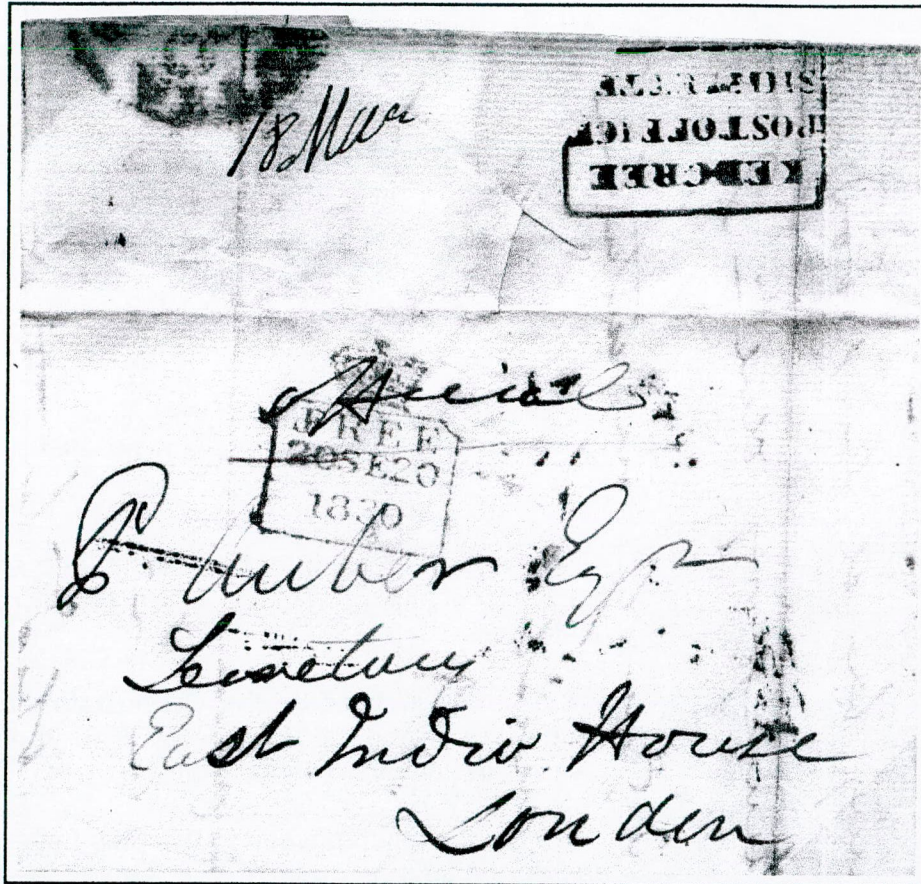 18 Mar
KEDGREE
POST OFFICE
SHIP LETTE
Official
FREE
20SE20
1830
P. Auber Esqr
Secretary
East India House
London